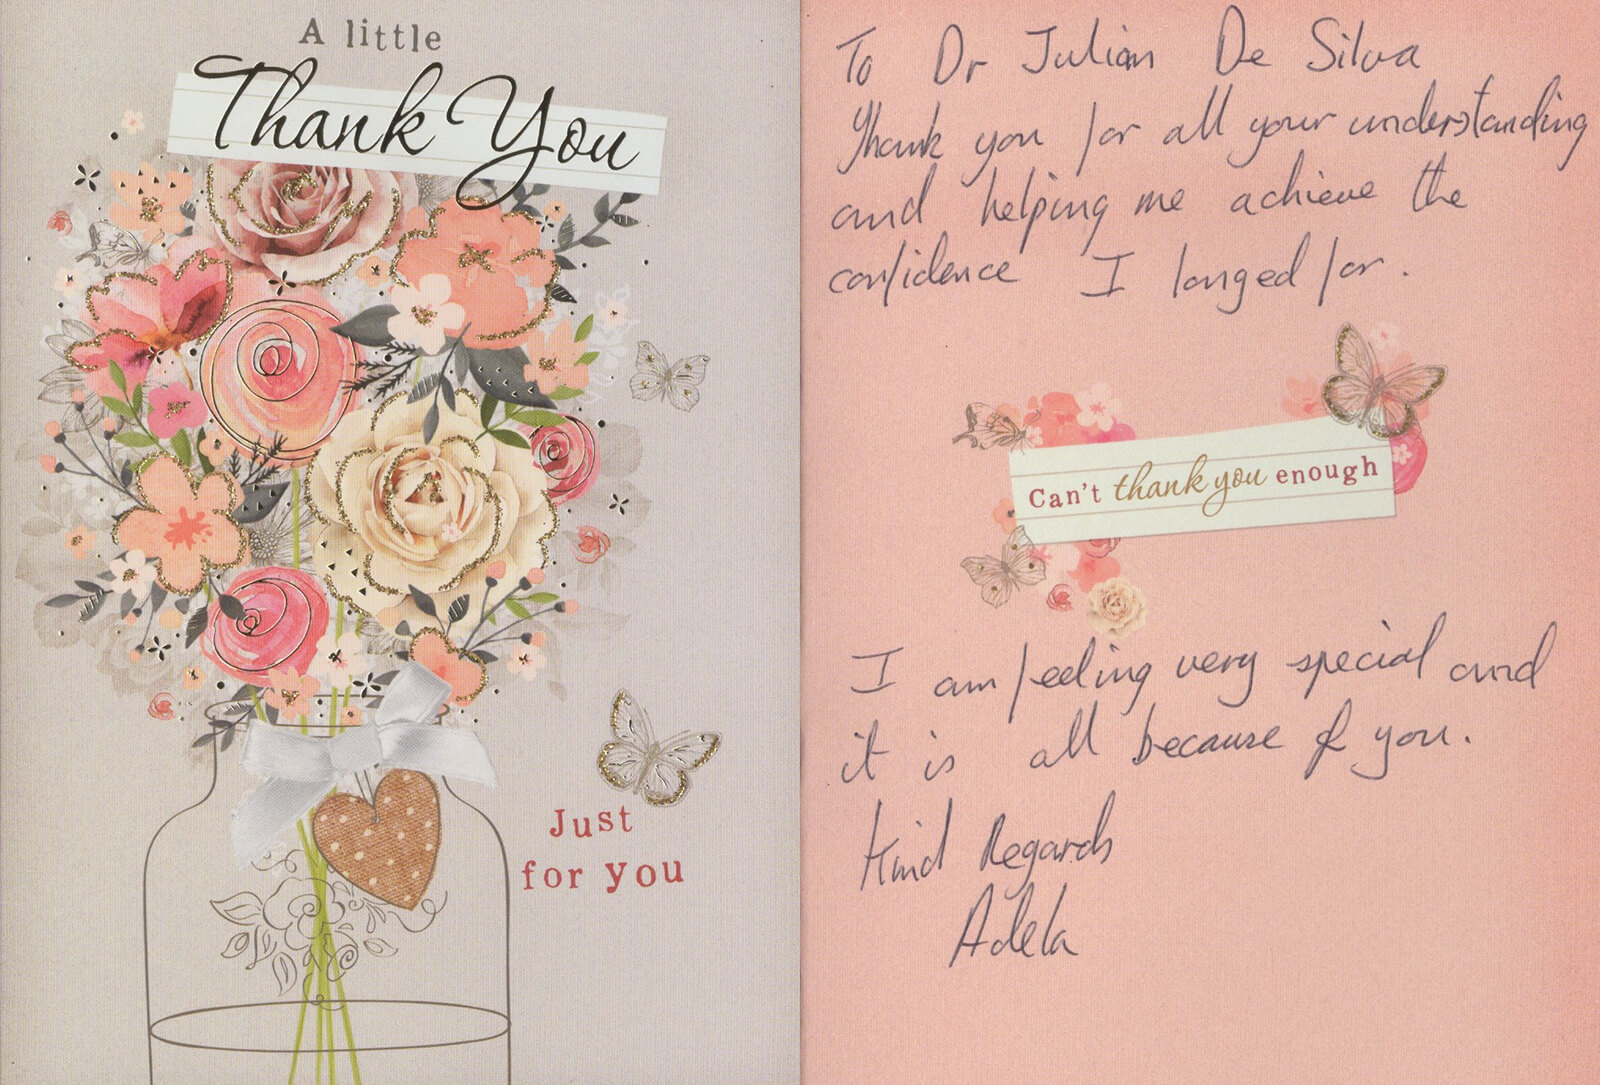 A little
Thank You
Just
for you
To Dr Julian De Silva
Thank you for all your understanding
and helping me achieve the
confidence I longed for.
Can't thank you enough
I am feeling very special and
it is all because of you.
Kind Regards
Adela